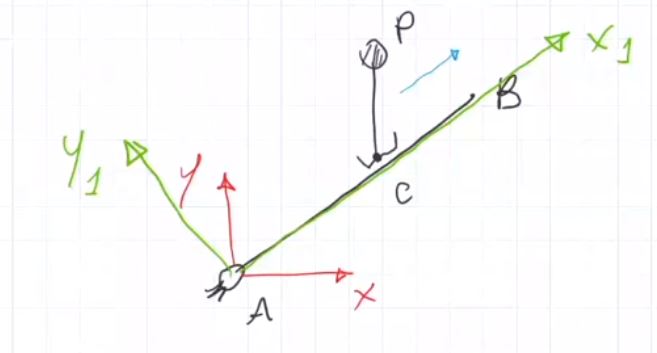 P
X₁
B
y₁
y
C
x
A